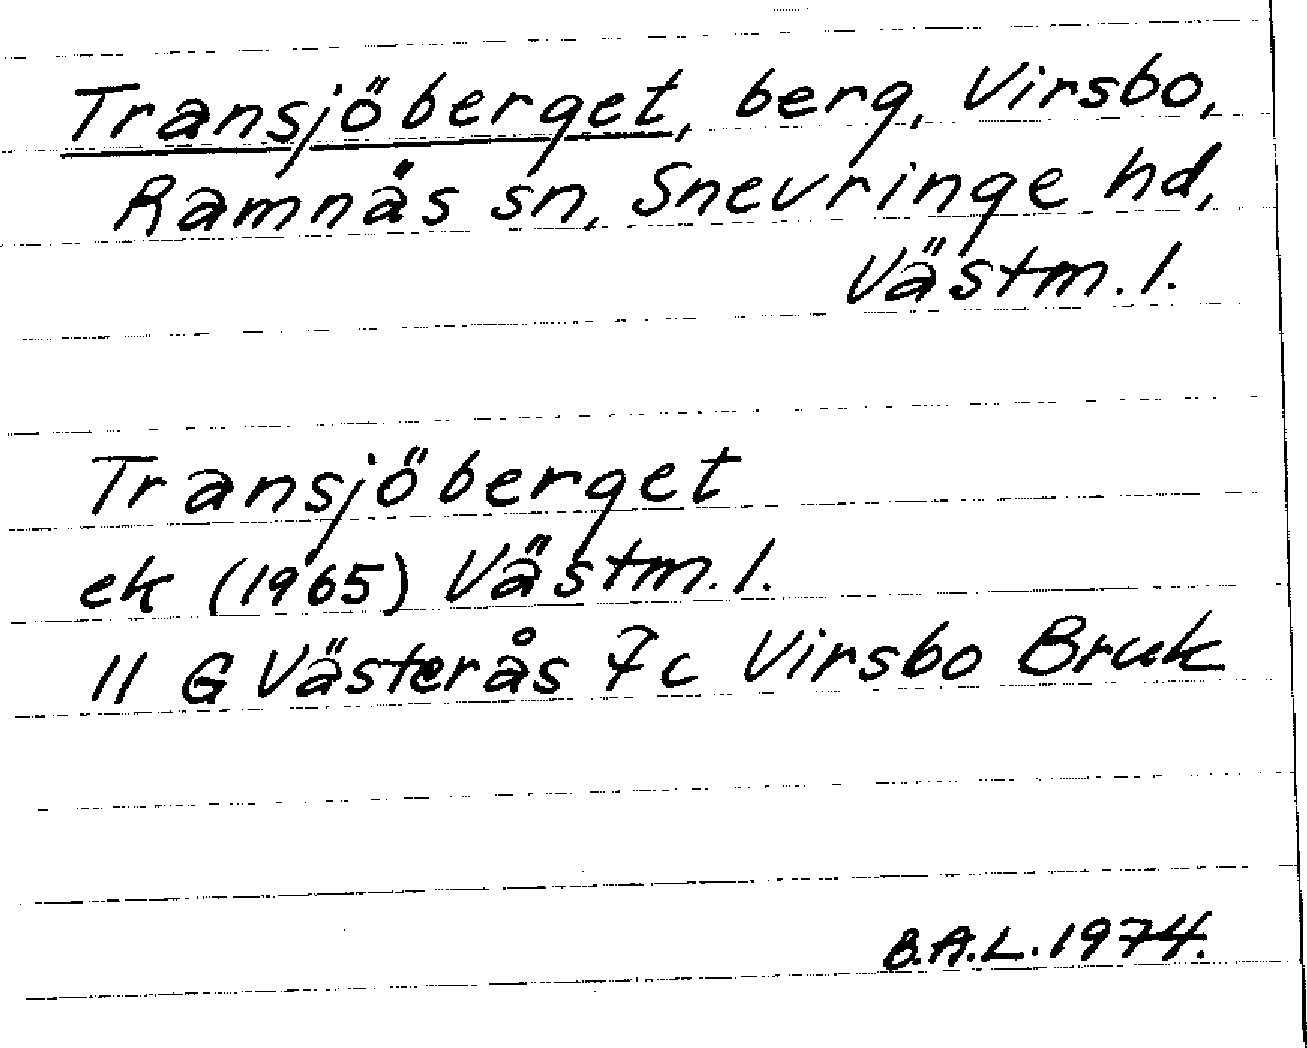 Transjöberget, berg, Virsbo,
Ramnäs sn, Snevringe hd,
Västm. l.
Transjöberget
ek (1965) Västm. l.
11 G Västerås 7c Virsbo Bruk
B.A.L. 1974.